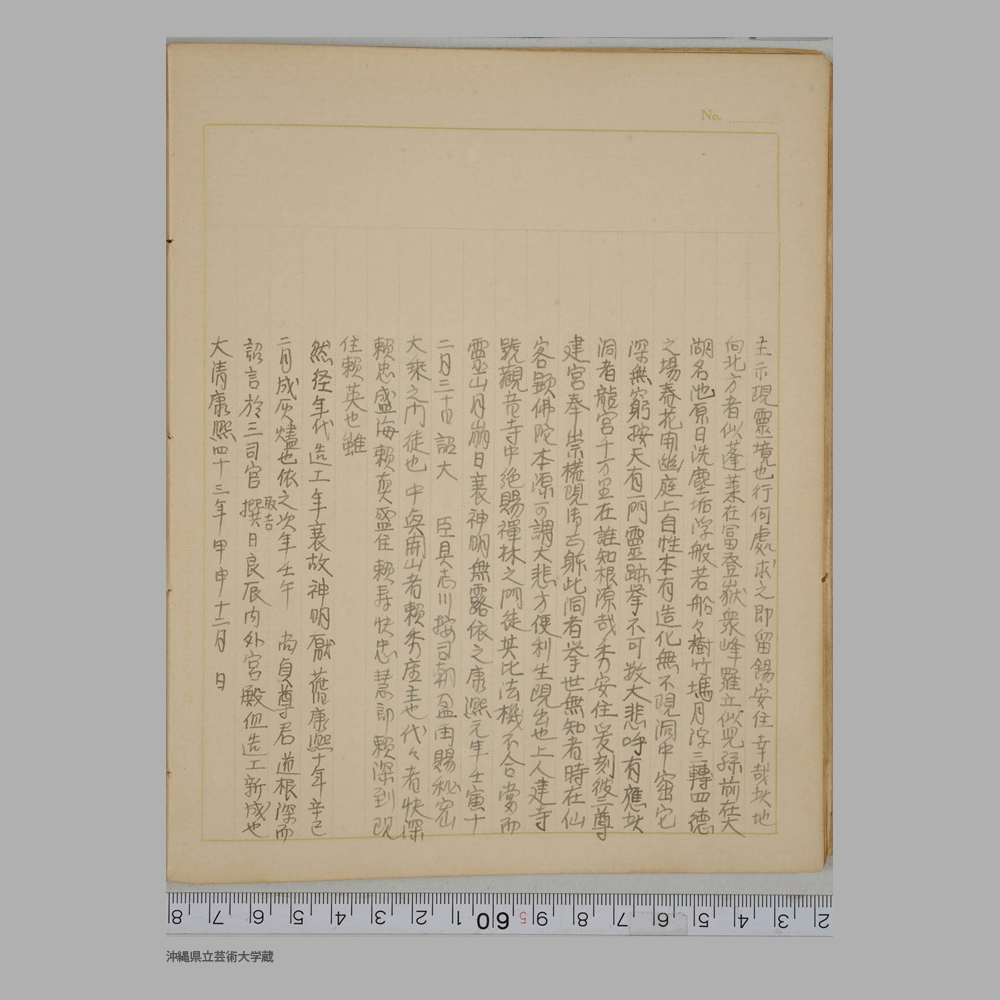 No.
主示現靈境也行何處求之即留錫安住幸哉玆地
向北方者似蓬莱在冨登嶽衆峰羅立似児孫前在大
湖名池原日洗塵垢浮般若船々樹竹塢月浮三轉四德
之場春花開幽庭上自性本有造化無不現洞中窟宅
深無窮按天有一門靈跡挙不可数大悲呼有應玆
洞者龍宮千万里在誰知根源哉秀安住爰刻彼三尊
建宮奉崇権現洞者挙世無知者時在仙
客顕佛陀本源可謂大悲方便利生現出也上人建寺
號觀音寺中絶賜禅林之門徒其比法機不合當而
靈山月崩日衰神明無露依之康煕元年壬寅十
二月三十日詔大 臣具志川按司朝盈再賜秘密
大乘之門徒也中興開山者賴秀座主也代々者快深
賴忠盛海賴英盛住賴寿快忠慧即賴深到現
住賴英也雖
然経年代造工年衰故神明厭舊康煕十年辛巳
二月成灰燼也依之次年壬午 尚貞尊君道根深而
詔言於三司官撰取吉日良辰内外宮殿俱造工新成也
大清康煕四十三年甲申十二月 日
8 7 6 5 4 3 2 1 60 5 9 8 7 6 5 4 3 2
沖縄県立芸術大学蔵